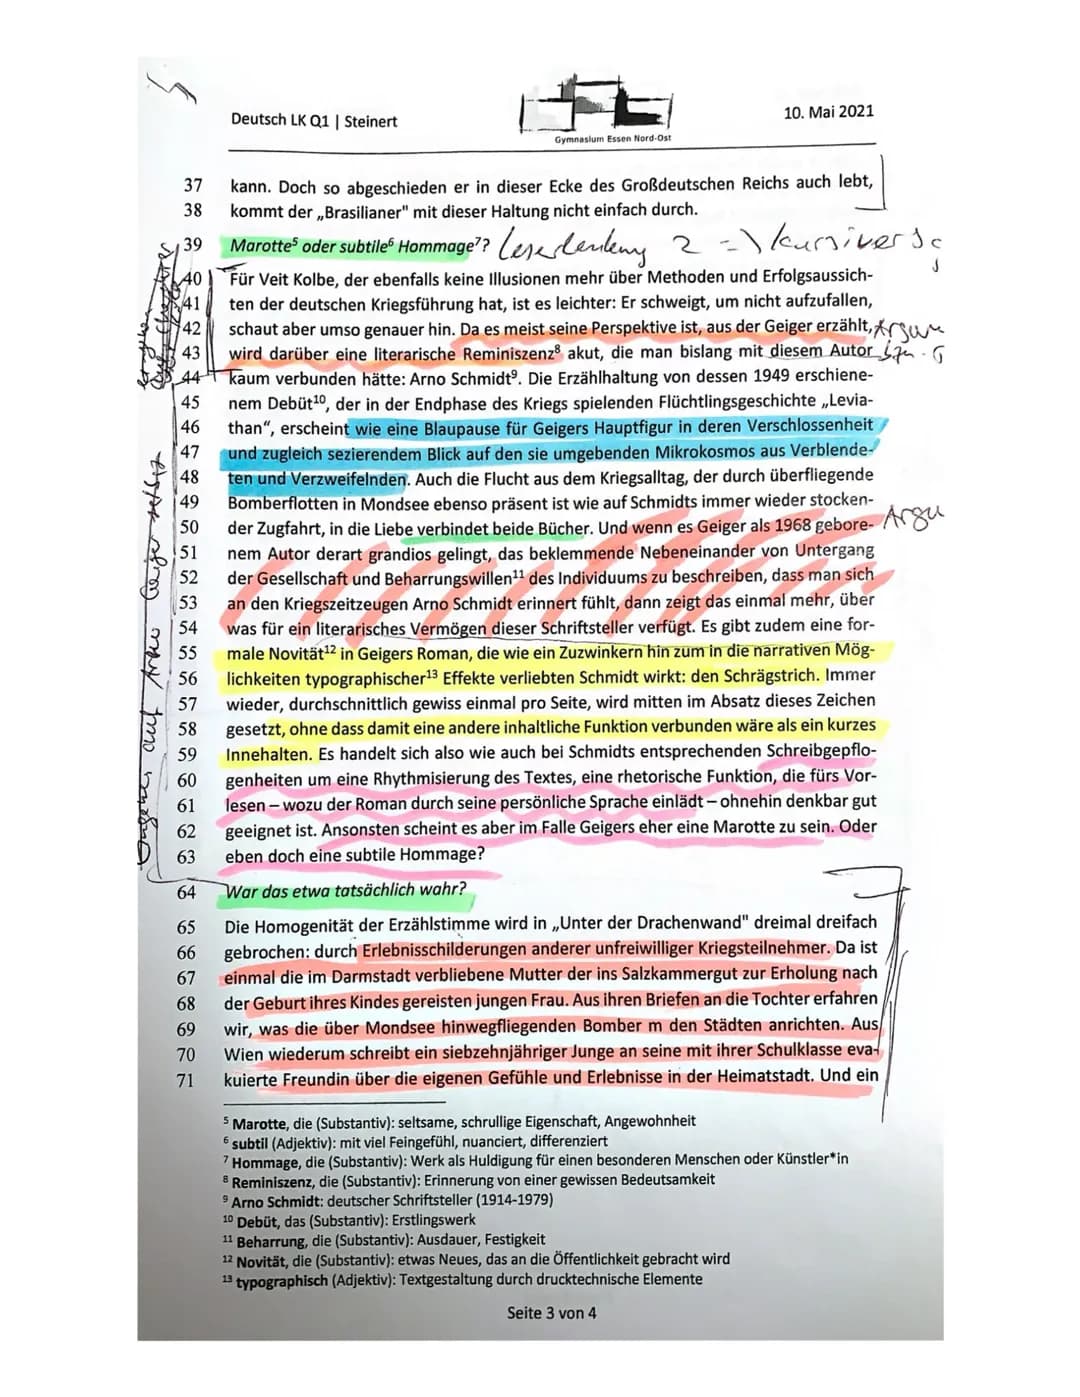 Deutsch LK Q1 | Steinert
Gymnasium Essen Nord-Ost
10. Mai 2021
37 kann. Doch so abgeschieden er in dieser Ecke des Großdeutschen Reichs auch lebt,
38 kommt der „Brasilianer" mit dieser Haltung nicht einfach durch.
39 Marotte⁵ oder subtile⁶ Hommage⁷? Leserlenkung 2 => kursiver
40 Für Veit Kolbe, der ebenfalls keine Illusionen mehr über Methoden und Erfolgsaussich-
41 ten der deutschen Kriegsführung hat, ist es leichter: Er schweigt, um nicht aufzufallen,
42 schaut aber umso genauer hin. Da es meist seine Perspektive ist, aus der Geiger erzählt,
43 wird darüber eine literarische Reminiszenz⁸ akut, die man bislang mit diesem Autor
44 kaum verbunden hätte: Arno Schmidt⁹. Die Erzählhaltung von dessen 1949 erschiene-
45 nem Debüt¹⁰, der in der Endphase des Kriegs spielenden Flüchtlingsgeschichte „Levia-
46 than“, erscheint wie eine Blaupause für Geigers Hauptfigur in deren Verschlossenheit
47 und zugleich sezierendem Blick auf den sie umgebenden Mikrokosmos aus Verblende-
48 ten und Verzweifelnden. Auch die Flucht aus dem Kriegsalltag, der durch überfliegende
49 Bomberflotten in Mondsee ebenso präsent ist wie auf Schmidts immer wieder stocken-
50 der Zugfahrt, in die Liebe verbindet beide Bücher. Und wenn es Geiger als 1968 gebore- Argu
51 nem Autor derart grandios gelingt, das beklemmende Nebeneinander von Untergang
52 der Gesellschaft und Beharrungswillen¹¹ des Individuums zu beschreiben, dass man sich
53 an den Kriegszeitzeugen Arno Schmidt erinnert fühlt, dann zeigt das einmal mehr, über
54 was für ein literarisches Vermögen dieser Schriftsteller verfügt. Es gibt zudem eine for-
55 male Novität¹² in Geigers Roman, die wie ein Zuzwinkern hin zum in die narrativen Mög-
56 lichkeiten typographischer¹³ Effekte verliebten Schmidt wirkt: den Schrägstrich. Immer
57 wieder, durchschnittlich gewiss einmal pro Seite, wird mitten im Absatz dieses Zeichen
58 gesetzt, ohne dass damit eine andere inhaltliche Funktion verbunden wäre als ein kurzes
59 Innehalten. Es handelt sich also wie auch bei Schmidts entsprechenden Schreibgepflo-
60 genheiten um eine Rhythmisierung des Textes, eine rhetorische Funktion, die fürs Vor-
61 lesen – wozu der Roman durch seine persönliche Sprache einlädt – ohnehin denkbar gut
62 geeignet ist. Ansonsten scheint es aber im Falle Geigers eher eine Marotte zu sein. Oder
63 eben doch eine subtile Hommage?
64 War das etwa tatsächlich wahr?
65 Die Homogenität der Erzählstimme wird in „Unter der Drachenwand" dreimal dreifach
66 gebrochen: durch Erlebnisschilderungen anderer unfreiwilliger Kriegsteilnehmer. Da ist
67 einmal die im Darmstadt verbliebene Mutter der ins Salzkammergut zur Erholung nach
68 der Geburt ihres Kindes gereisten jungen Frau. Aus ihren Briefen an die Tochter erfahren
69 wir, was die über Mondsee hinwegfliegenden Bomber m den Städten anrichten. Aus
70 Wien wiederum schreibt ein siebzehnjähriger Junge an seine mit ihrer Schulklasse eva-
71 kuierte Freundin über die eigenen Gefühle und Erlebnisse in der Heimatstadt. Und ein
⁵ Marotte, die (Substantiv): seltsame, schrullige Eigenschaft, Angewohnheit
⁶ subtil (Adjektiv): mit viel Feingefühl, nuanciert, differenziert
⁷ Hommage, die (Substantiv): Werk als Huldigung für einen besonderen Menschen oder Künstler*in
⁸ Reminiszenz, die (Substantiv): Erinnerung von einer gewissen Bedeutsamkeit
⁹ Arno Schmidt: deutscher Schriftsteller (1914-1979)
¹⁰ Debüt, das (Substantiv): Erstlingswerk
¹¹ Beharrung, die (Substantiv): Ausdauer, Festigkeit
¹² Novität, die (Substantiv): etwas Neues, das an die Öffentlichkeit gebracht wird
¹³ typographisch (Adjektiv): Textgestaltung durch drucktechnische Elemente
Seite 3 von 4